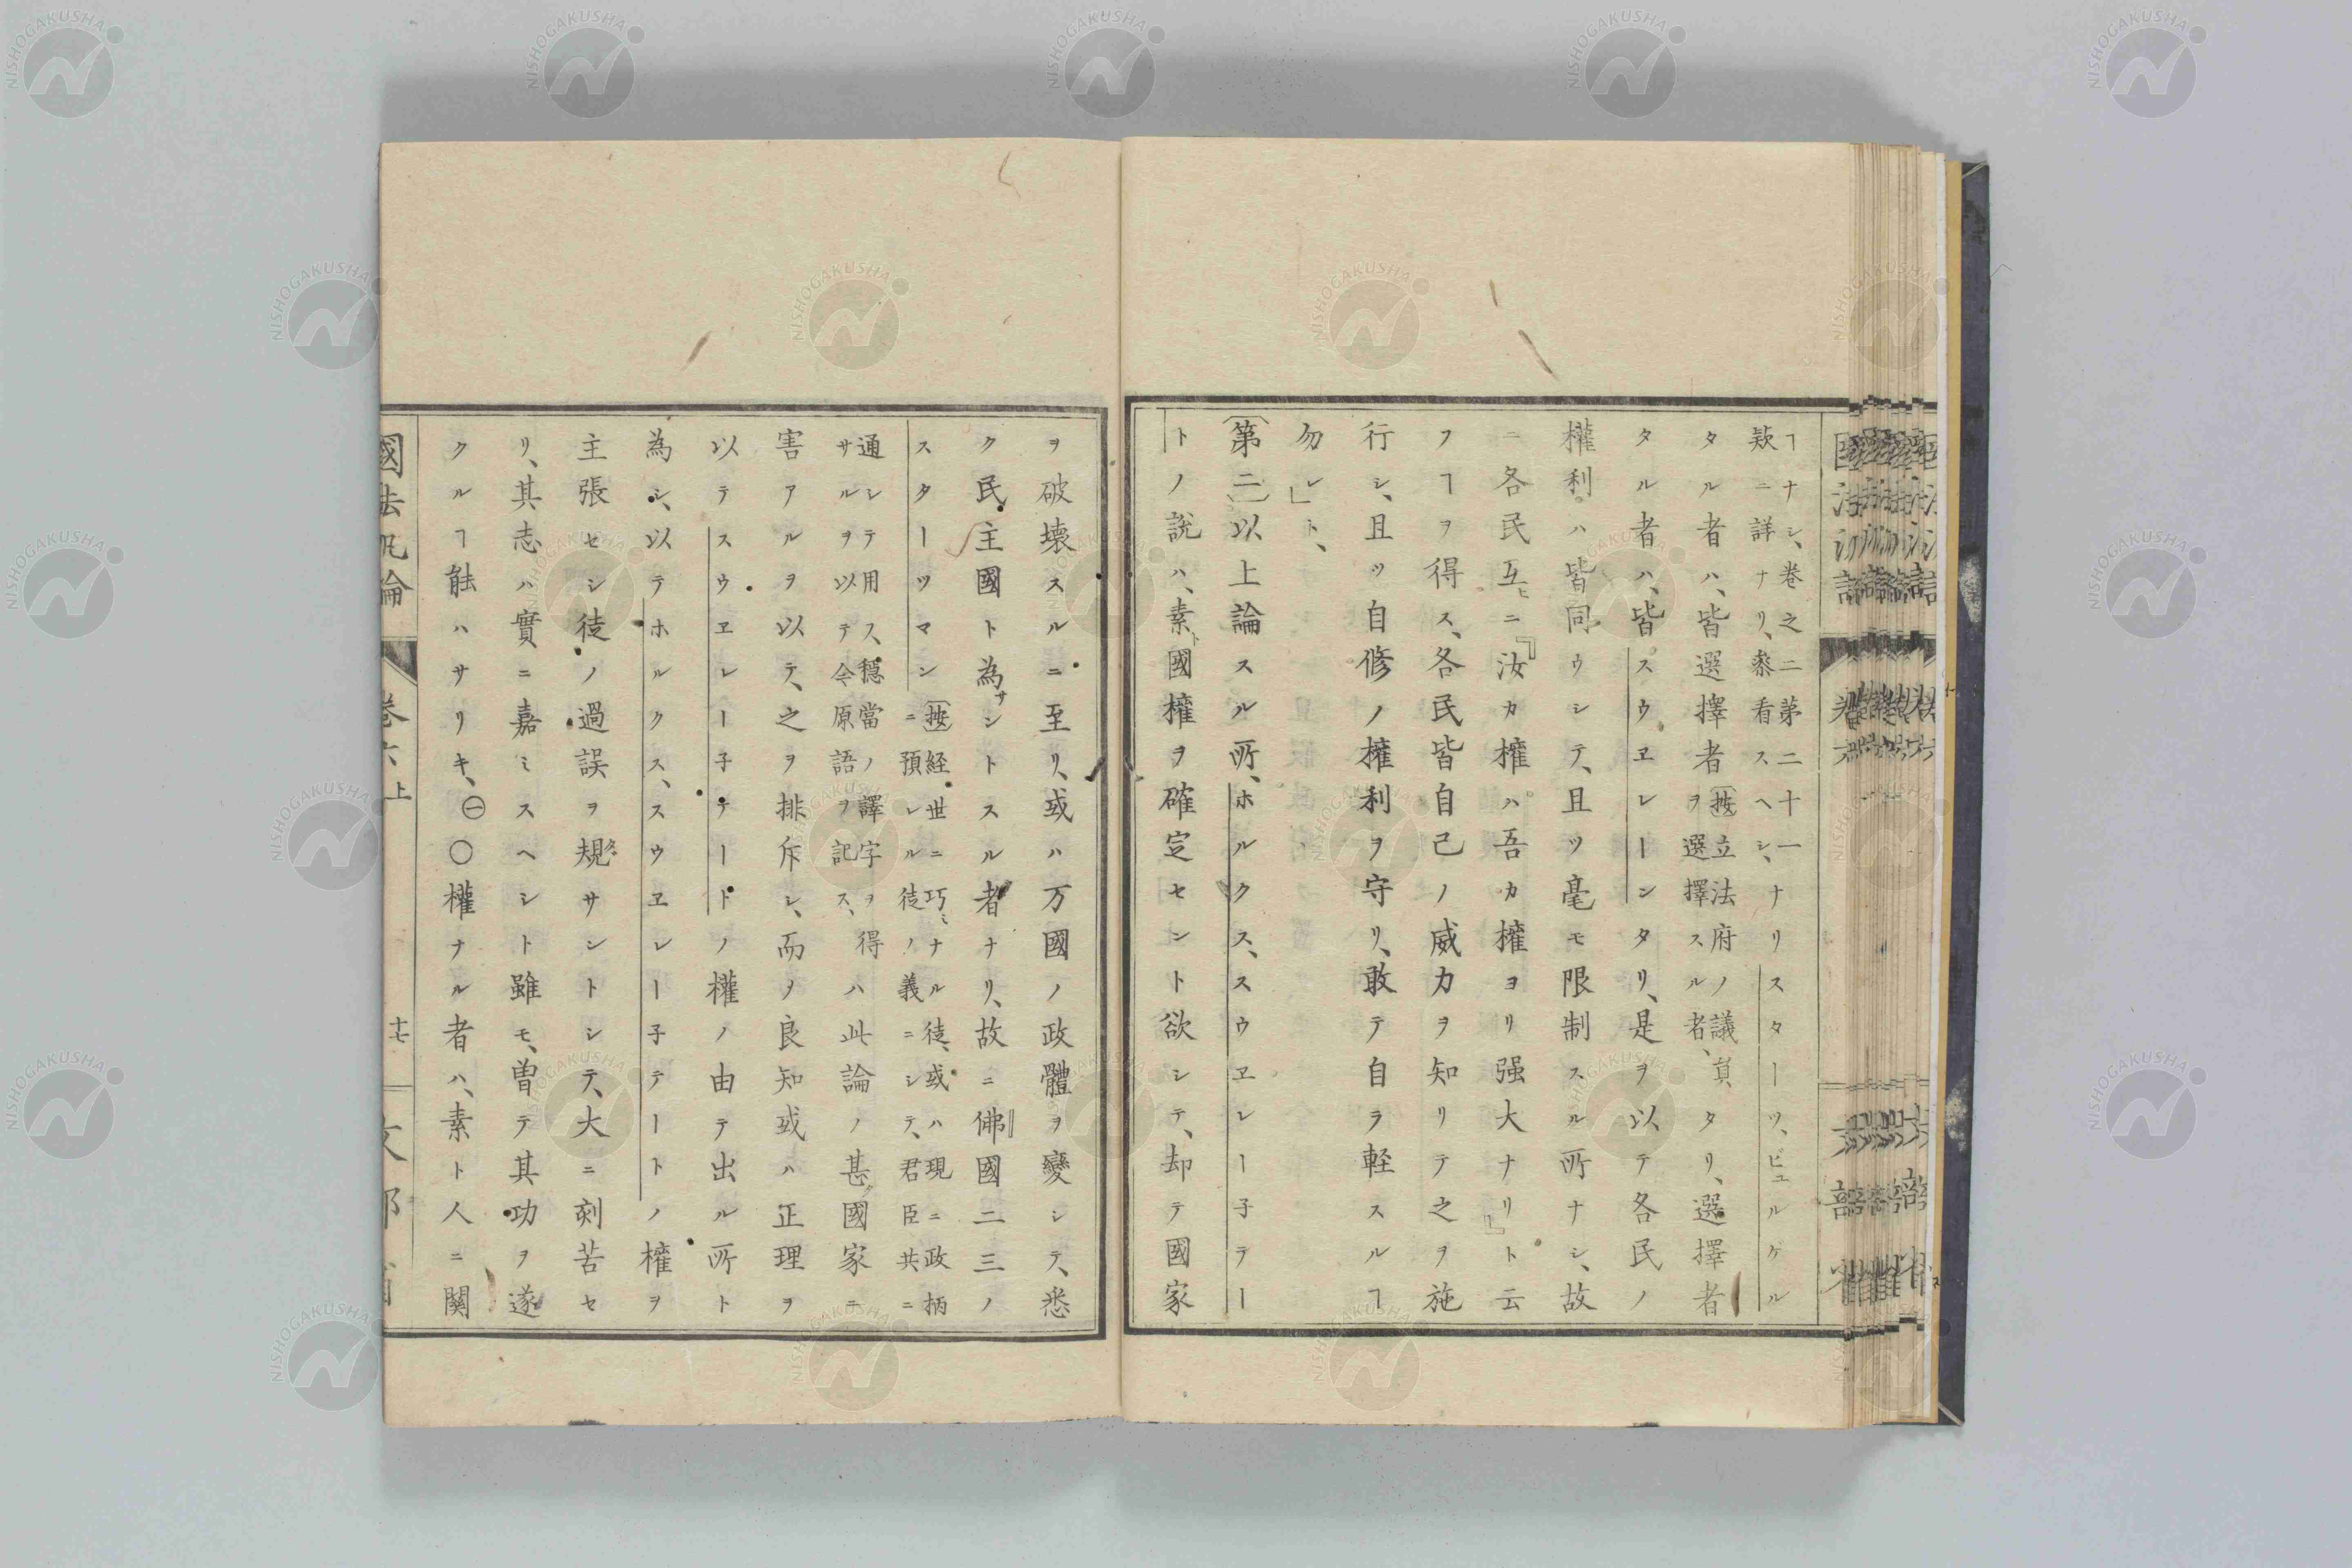 ヿナシ、巻之二第二十一
欵ニ詳ナリ、叅看スヘシ、ナリスターツ、ビュルゲル
タル者ハ、皆選擇者
〔按〕立法府ノ議員
ヲ選擇スル者、
タリ、選擇者
タル者ハ、皆スウヱレーンタリ、是ヲ以テ各民ノ
權利ハ皆同ウシテ、且ツ毫モ限制スル所ナシ、故
ニ各民互ヒニ『汝カ權ハ吾カ權ヨリ强大ナリ』ト云
フヿヲ得ス、各民皆自己ノ威力ヲ知リテ之ヲ施
行シ、且ツ自修ノ權利ヲ守リ、敢テ自ラ軽スルヿ
勿レ」ト、
〔第二〕以上論スル所、ホルクス、スウヱレー子テー
トノ說ハ、素ト國權ヲ確定セント欲シテ、却テ國家
ヲ破壊スルニ至リ、或ハ万國ノ政體ヲ變シテ、悉
ク民主國ト為サントスル者ナリ、故ニ佛國二三ノ
スターツマン
〔按〕経世ニ巧ミナル徒、或ハ現ニ政柄
ニ預レル徒ノ義ニシテ、君臣共ニ
通シテ用ス、穏當ノ譯字ヲ得
サルヲ以テ今原語ヲ記ス、
ハ此論ノ甚タ國家ニ
害アルヲ以テ、之ヲ排斥シ、而メ良知或ハ正理ヲ
以テスウヱレー子テードノ權ノ由テ出ル所ト
為シ、以テホルクス、スウヱレー子テートノ權ヲ
主張セシ徒ノ過誤ヲ規サントシテ、大ニ刻苦セ
リ、其志ハ實ニ嘉ミスヘシト雖モ、曽テ其功ヲ遂
クルヿ能ハサリキ、㊀〇權ナル者ハ、素ト人ニ關
國法汎論 巻六上 十七 文部省